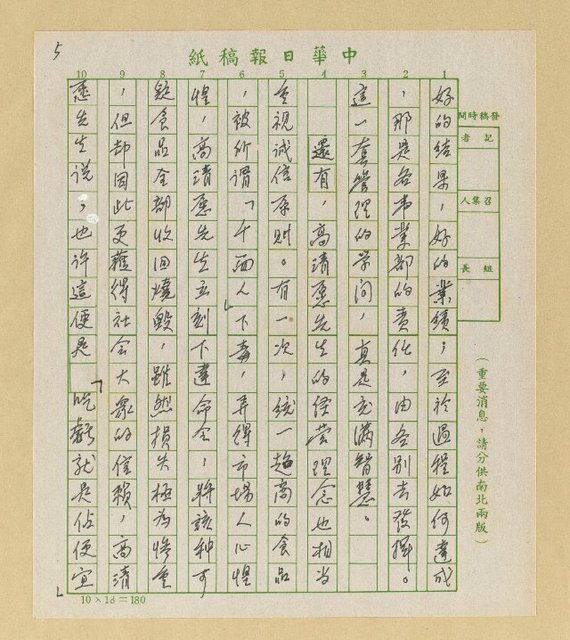 5
中華日報稿紙
1 2 3 4 5 6 7 8 9 10
發稿時間
記者
召集人
組長
(重要消息，請分供南北兩版)
好的結果，好的業績；至於過程如何達成
，那是各事業部的責任，由各別去發揮。
這一套管理的学问，真是充滿智慧。
還有，高清愿先生的經营理念也相当
重視诚信原則。有一次，統一超商的食品
，被所谓「千面人」下毒，弄得市場人心惶
惶，高清愿先生立刻下達命令，將該种可
疑食品全部收回燒毀，雖然損失極為慘重
，但却因此更獲得社会大眾的信賴，高清
愿先生说，也许這便是「吃虧就是佔便宜」
10×18=180